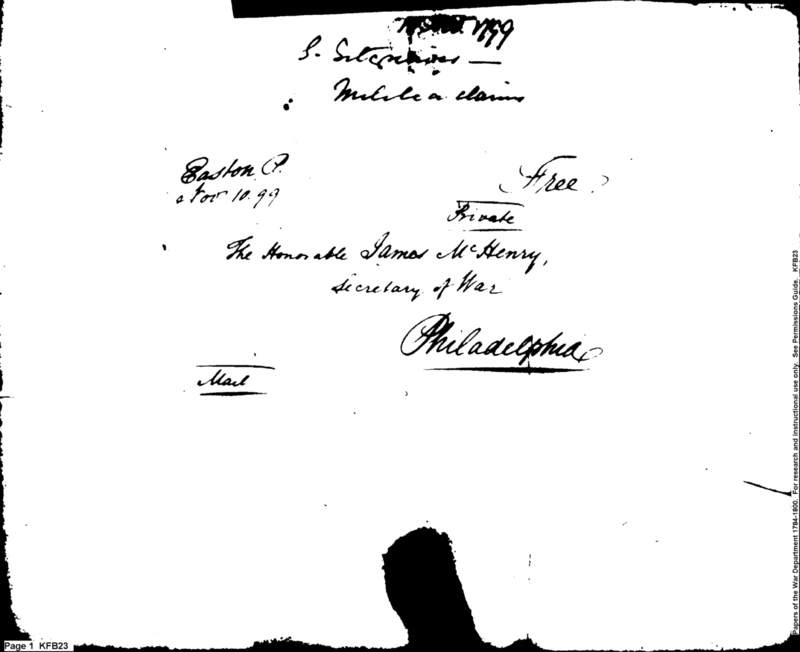 S. Sitgreaves —
Militia claims
Easton P.
Nov 10. 99
Free
Private
The Honorable James McHenry,
Secretary of War
Philadelphia
Mail
Papers of the War Department 1784-1800. For research and instructional use only. See Permissions Guide. KFB23
Page 1 KFB23